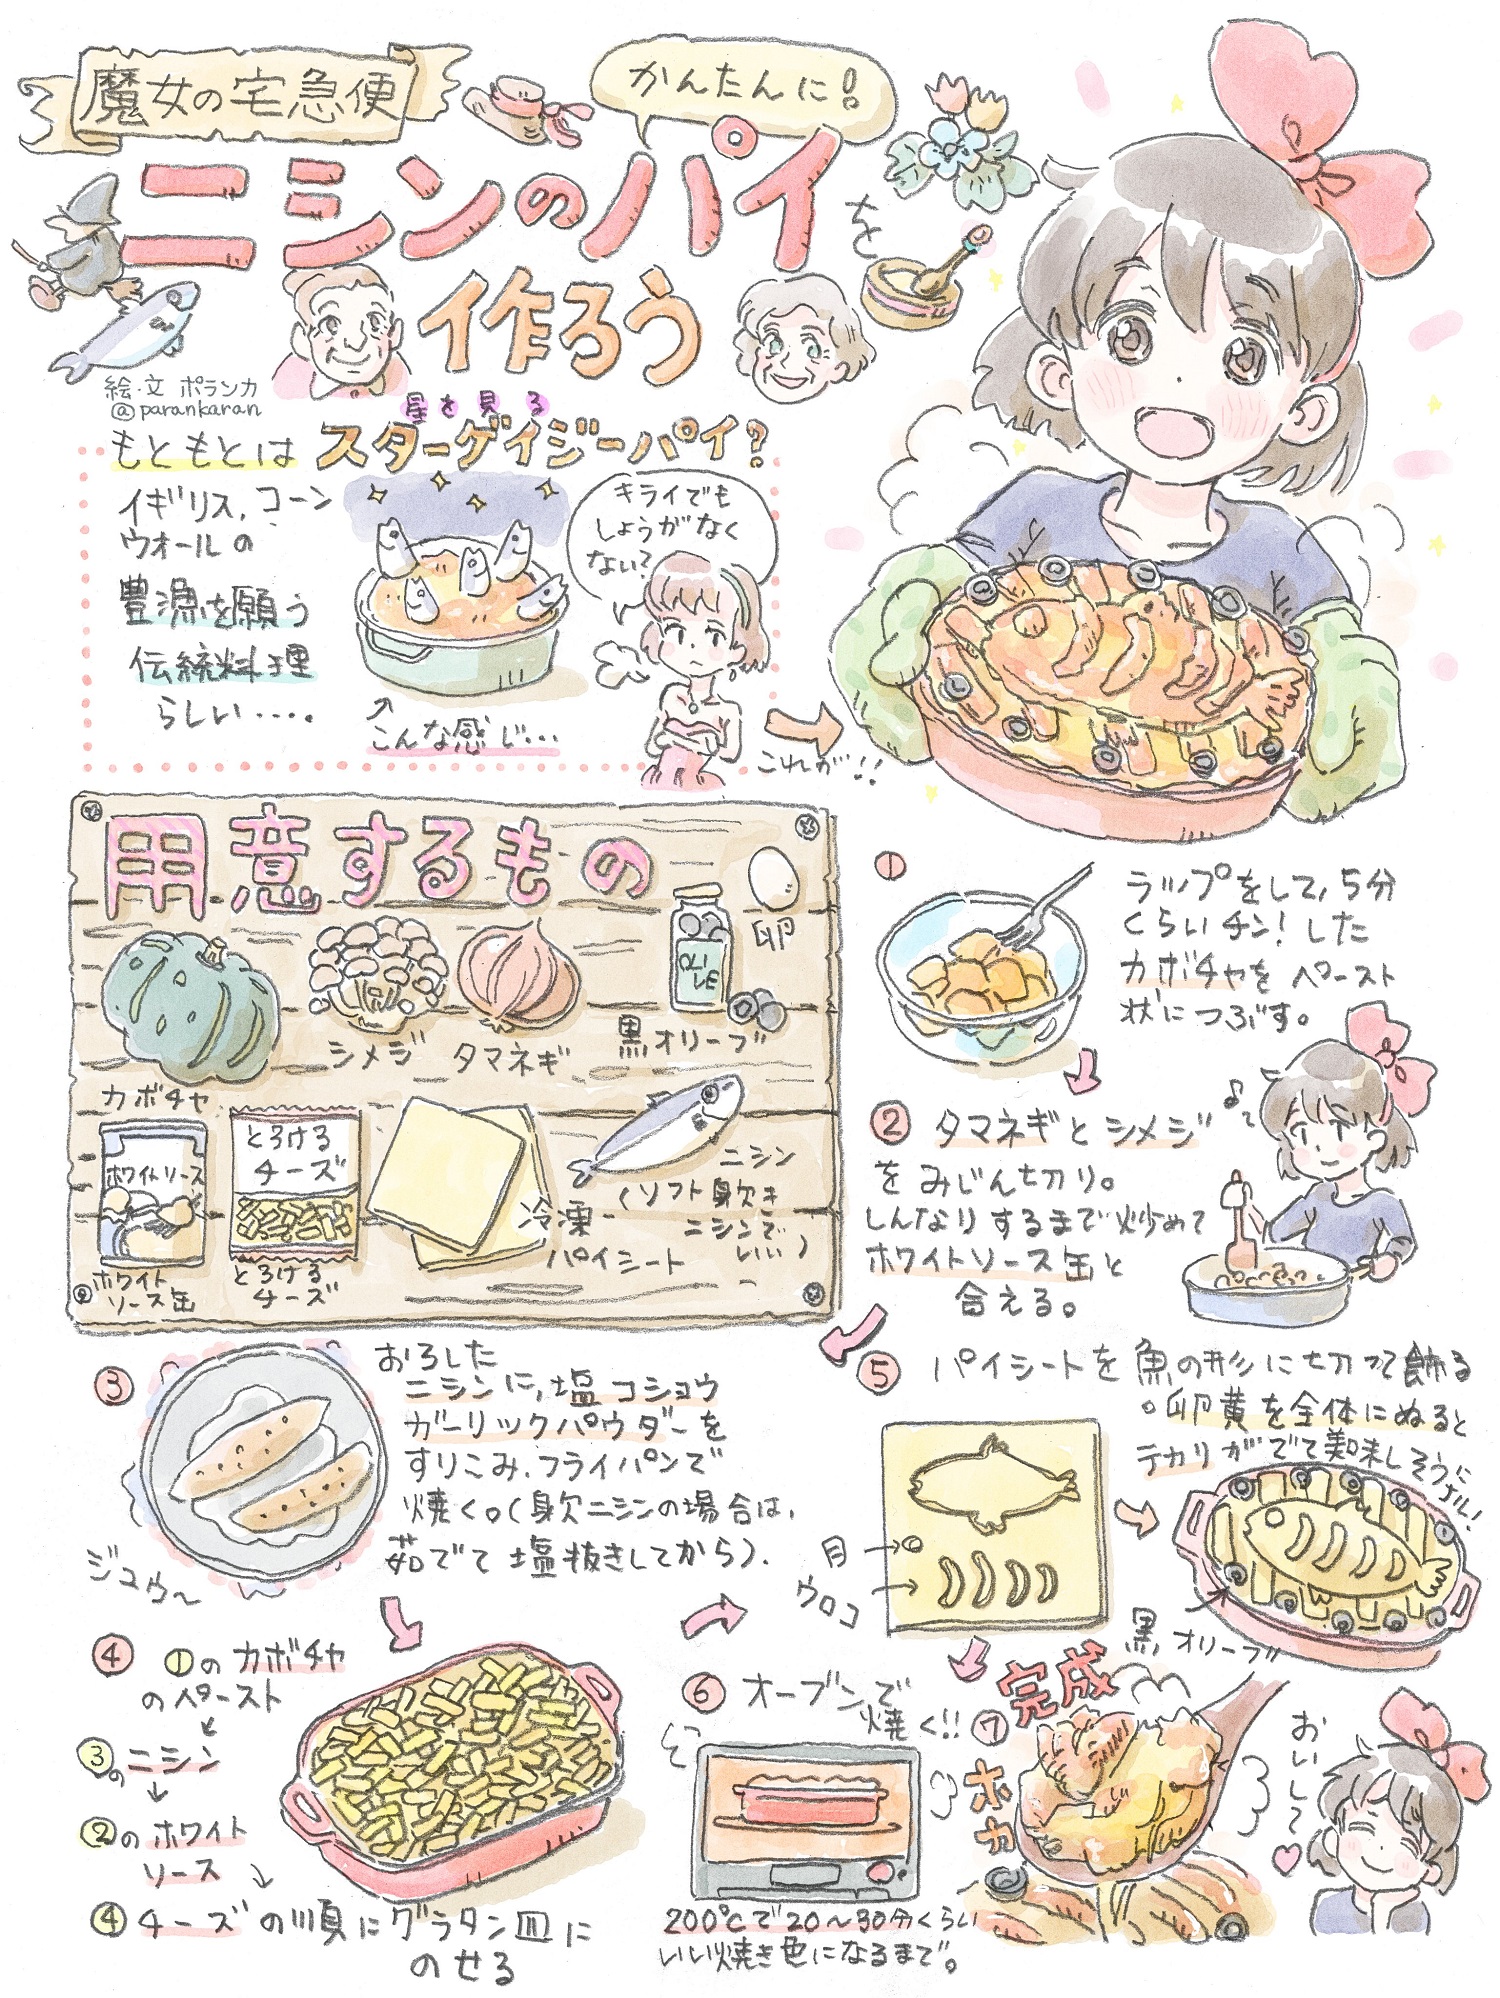 魔女の宅急便
かんたんに!
ニシンのパイを
作ろう
絵・文 ポランカ
@parankaran
星を見る
もともとは スターゲイジーパイ?
イギリス、コーン
ウォールの
豊漁を願う
伝統料理
らしい・・・・
こんな感じ・・・
キライでも
しょうがなく
ない?
これが!!
用意するもの
卵
OLI
VE
シメジ
タマネギ
黒オリーブ
カボチャ
ホワイトソース
とろける
チーズ
ニシン
(ソフト身欠き
ニシンで
いい)
冷凍
パイシート
ホワイト
ソース缶
とろける
チーズ
① ラップをして、5分
くらいチン!した
カボチャをペースト
状につぶす。
② タマネギとシメジ
をみじん切り。
しんなりするまで炒めて
ホワイトソース缶と
合える。
♪
③ おろした
ニシンに、塩コショウ
ガーリックパウダーを
すりこみ、フライパンで
焼く。(身欠ニシンの場合は、
茹でて塩抜きしてから)。
ジュウ〜
④ ①のカボチャ
のペースト
↓
③のニシン
↓
②のホワイト
ソース
↓
④チーズの順にグラタン皿に
のせる
⑤ パイシートを魚の形に切って飾る
。卵黄を全体にぬると
テカリがでて美味しそうに
ナル!
目→
ウロコ→
黒オリーブ
⑥ オーブンで
焼く!!
200℃で20〜30分くらい
いい焼き色になるまで。
⑦ 完成
ホカ
おいして♡